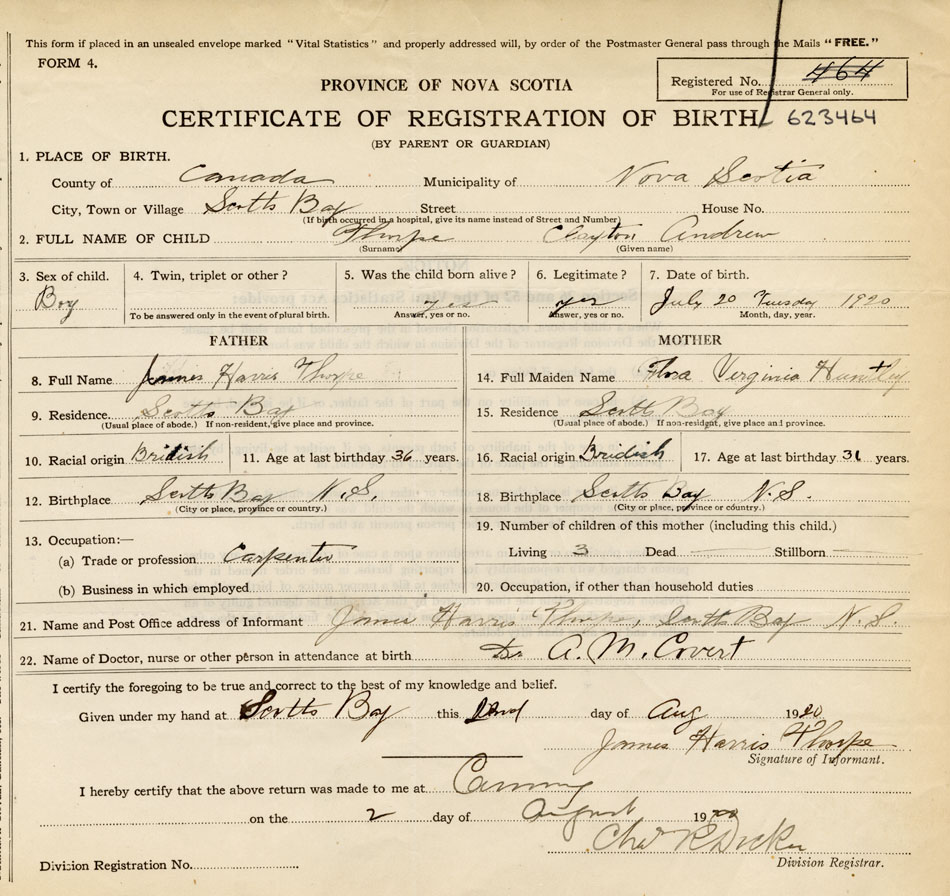 This form if placed in an unsealed envelope marked "Vital Statistics" and properly addressed will, by order of the Postmaster General pass through the Mails "FREE."
FORM 4.
Registered No. 464
For use of Registrar General only.
PROVINCE OF NOVA SCOTIA
CERTIFICATE OF REGISTRATION OF BIRTH 623464
(BY PARENT OR GUARDIAN)
1. PLACE OF BIRTH.
County of Canada Municipality of Nova Scotia
City, Town or Village Scotts Bay Street House No.
(If birth occurred in a hospital, give its name instead of Street and Number)
2. FULL NAME OF CHILD Thorpe Clayton Andrew
(Surname) (Given name)
3. Sex of child. 4. Twin, triplet or other? 5. Was the child born alive? 6. Legitimate? 7. Date of birth.
Boy yes yes July 20 Tuesday 1920
To be answered only in the event of plural birth. Answer, yes or no. Answer, yes or no. Month, day, year.
FATHER
8. Full Name James Harris Thorpe
9. Residence. Scotts Bay
(Usual place of abode.) If non-resident, give place and province.
10. Racial origin Bridish 11. Age at last birthday 36 years.
12. Birthplace Scotts Bay N.S.
(City or place, province or country.)
13. Occupation:—
(a) Trade or profession Carpenter
(b) Business in which employed
MOTHER
14. Full Maiden Name Flora Virginia Huntley
15. Residence Scotts Bay
(Usual place of abode.) If non-resident, give place and province.
16. Racial origin Bridish 17. Age at last birthday 31 years.
18. Birthplace Scotts Bay N.S.
(City or place, province or country.)
19. Number of children of this mother (including this child.)
Living 3 Dead — Stillborn —
20. Occupation, if other than household duties
21. Name and Post Office address of Informant James Harris Thorpe, Scotts Bay N.S.
22. Name of Doctor, nurse or other person in attendance at birth Dr A. M. Covert
I certify the foregoing to be true and correct to the best of my knowledge and belief.
Given under my hand at Scotts Bay this 2nd day of Aug 1920
James Harris Thorpe
Signature of Informant.
I hereby certify that the above return was made to me at Canning
on the 2 day of August 1920
Chas
Division Registration No. Division Registrar.